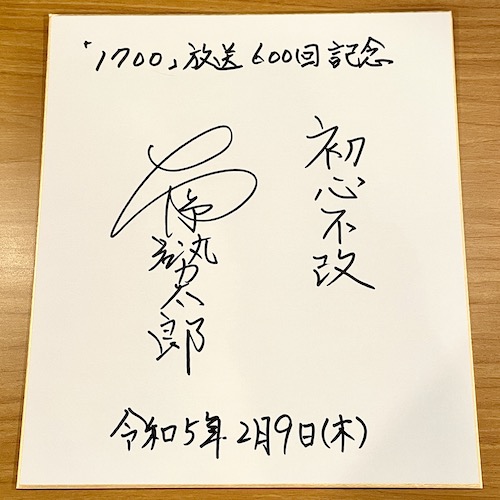 「1700」放送600回記念
初心不改
勢太郎
令和5年2月9日(木)